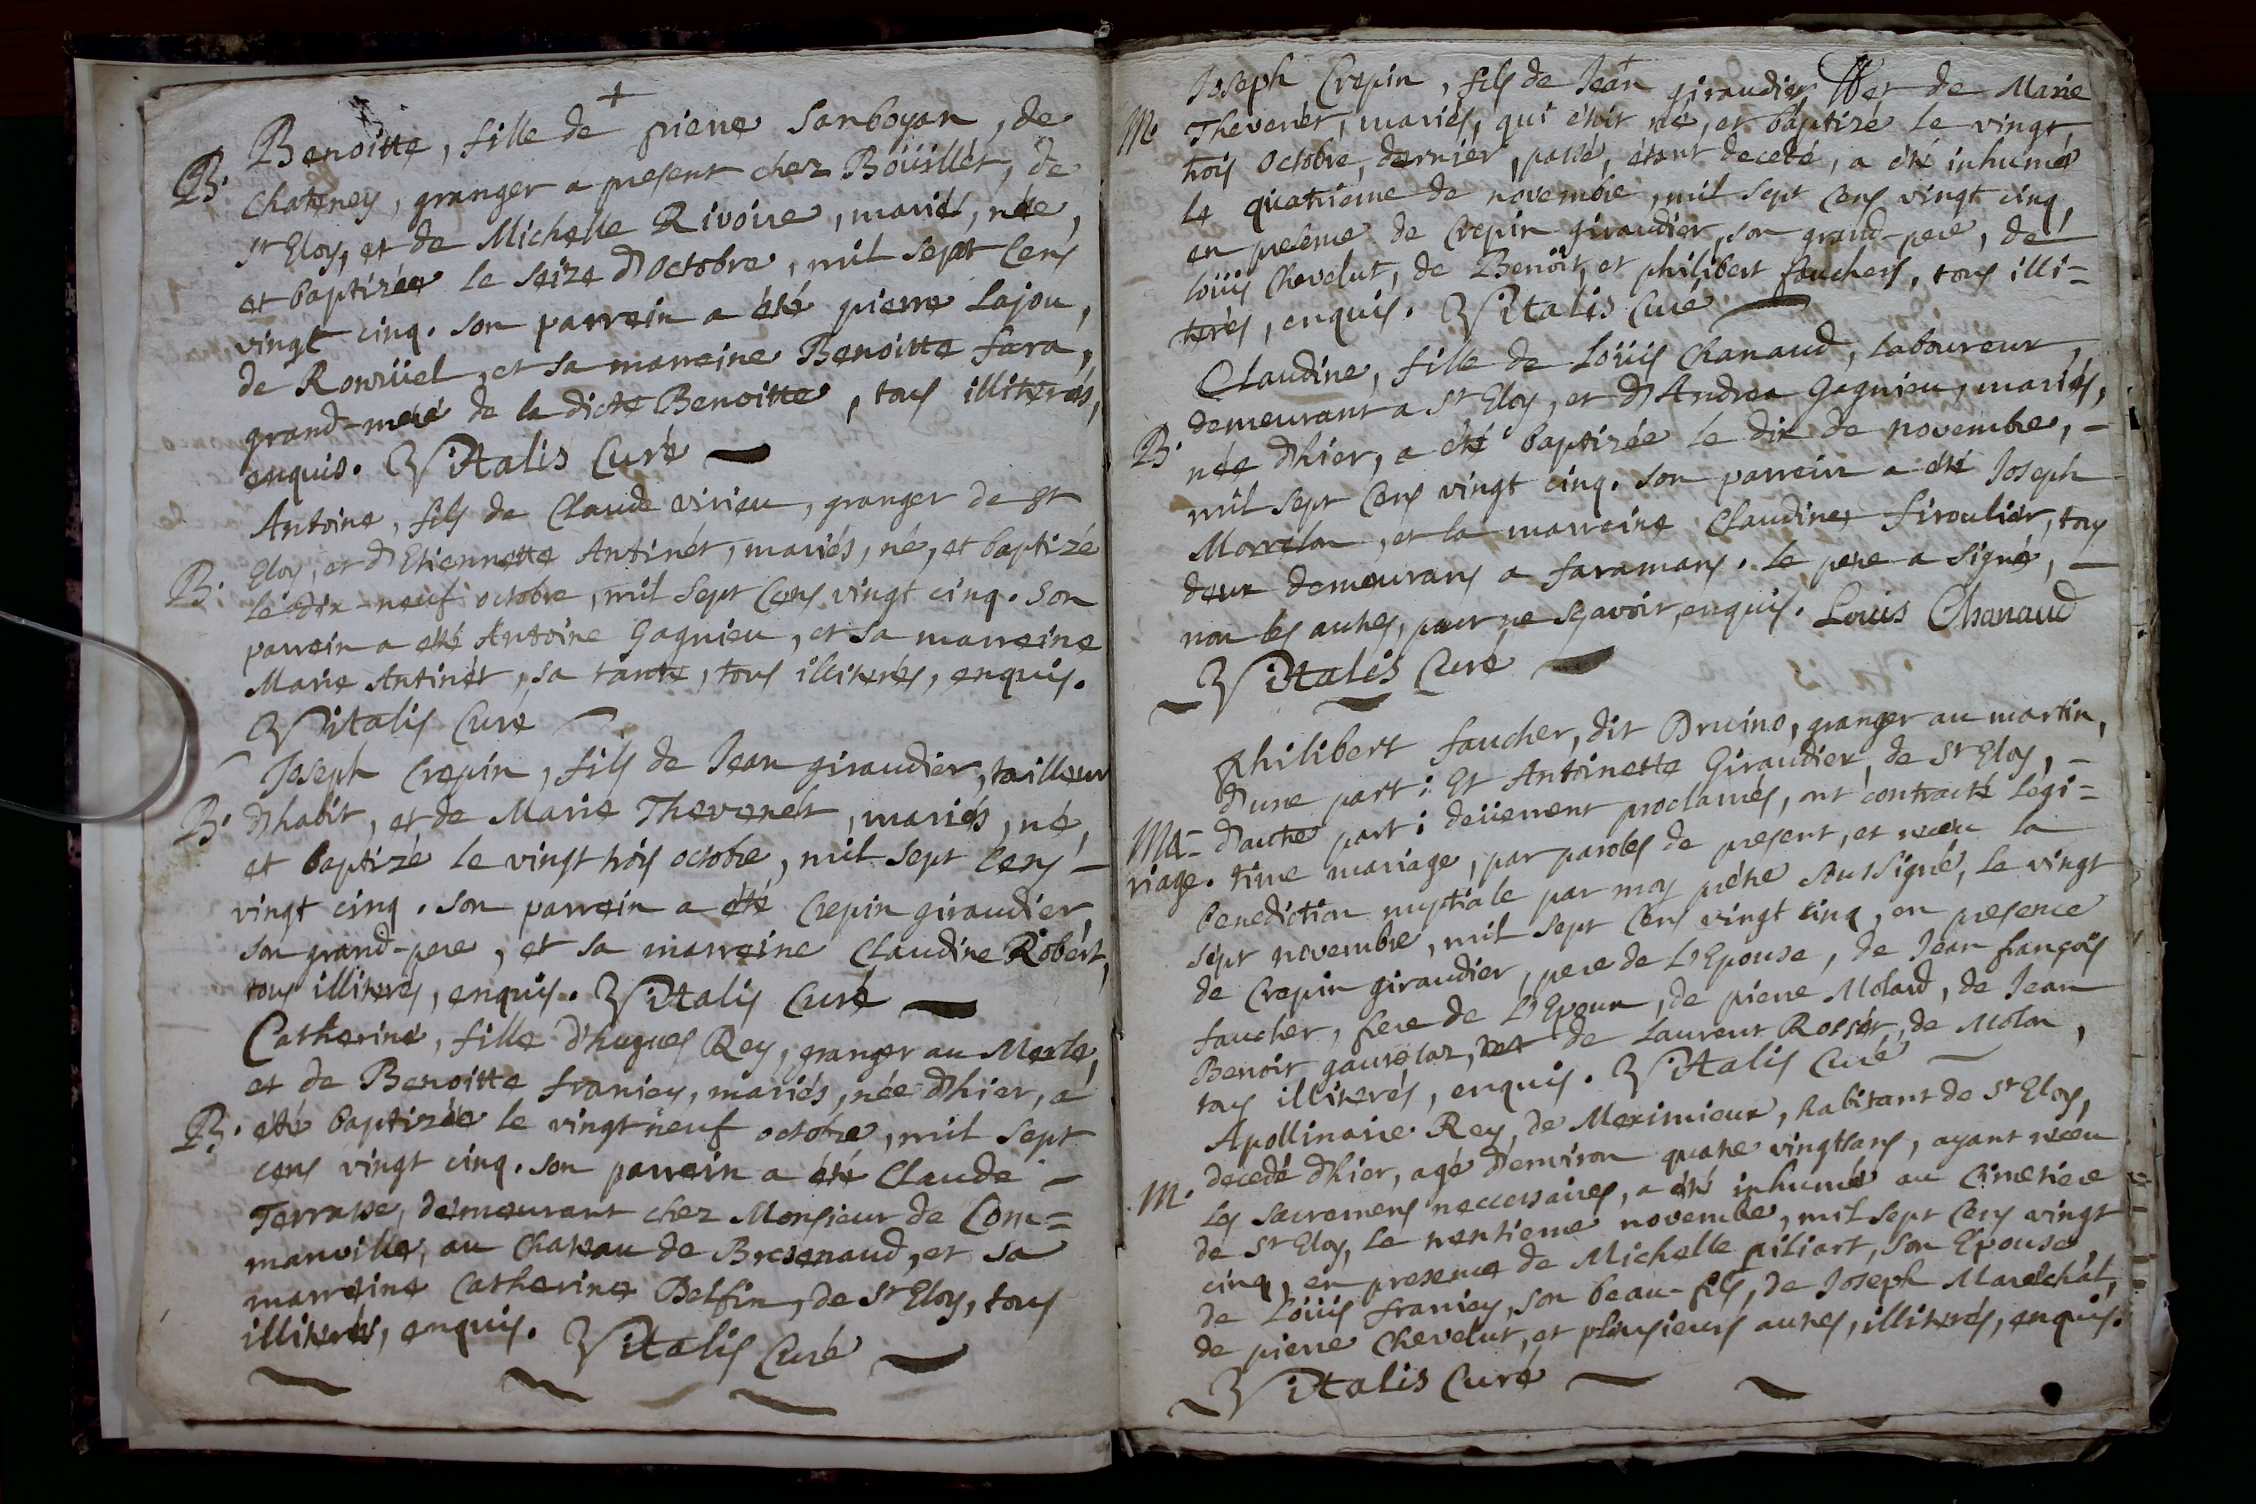 Benoitte, fille de pierre Sanboyan, de
B. Chateney, granger a present chez Boüillét, de
St Eloy, et de Michelle Rivoire, mariés, née,
et baptizée le seize d'Octobre, mil sept cens
vingt cinq. son parrein a été pierre Lajou,
de Ronzüel, et sa marreine Benoitte fara,
grand-mere de la dicte Benoitte, tous illiterés,
enquis. Vitalis Curé
Antoine, fils de Claude virieu, granger de St
B. Eloy, et d'Etiennette Antinét, mariés, né, et baptizé
le dix-neuf octobre, mil sept cens vingt cinq. son
parrein a été Antoine Gagnieu, et sa marreine
Marie Antinét, sa tante, tous illiterés, enquis.
Vitalis Curé
Joseph Crepin, fils de Jean giraudier, tailleur
B. d'habit, et de Marie Thevenét, mariés, né,
et baptizé le vingt trois octobre, mil sept cens
vingt cinq. son parrein a été Crepin giraudier,
son grand-pere, et sa marreine Claudine Robért,
tous illiterés, enquis. Vitalis Curé
Catherine, fille d'hugues Rey, granger au Merle,
et de Benoitte franiey, mariés, née d'hier, a
B. été baptizée le vingt neuf octobre, mil sept
cens vingt cinq. son parrein a été Claude
Terrasse, demeurant chez Monsieur de Com=
manville, au chateau de Bresenaud, et sa
marreine Catherine Belfin, de St Eloy, tous
illiterés, enquis. Vitalis Curé
Joseph Crepin, fils de Jean giraudier et de Marie
M. Thevenét, mariés, qui étoit né, et baptizé le vingt
trois Octobre, dernier, passé, étant decedé, a été inhumé
le quatrieme de novembre, mil sept cens vingt cinq,
en presence de Crepin giraudier, son grand-pere, de
loüis Chevelut, de Benoît, et philibert fauchers, tous illi=
terés, enquis. Vitalis Curé
Claudine, fille de Loüis Chanaud, laboureur,
demeurant a St Eloy, et d'Andrea Gagnieu, mariés,
B. née d'hier, a été baptizée le dix de novembre,
mil sept cens vingt cinq. son parrein a été Joseph
Morrelon, et la marreine Claudine firoulier, tous
deux demeurans a faramans. le pere a signé,
non les autres, pour ne sçavoir, enquis. Louis Chanaud
Vitalis Curé
Philibert faucher, dit Druino, granger au martin,
d'une part: Et Antoinette Giraudier, de St Eloy,
Ma= d'autre part: deüement proclamés, ont contracté legi=
riage. time mariage, par paroles de present, et receu la
benediction nuptiale par moy prétre soussigné, le vingt
sept novembre, mil sept cens vingt cinq, en presence
de Crepin giraudier, pere de L'Epouse, de Jean françois
faucher, frere de L'Epoux, de pierre Molard, de Jean
Benoit gaurelaz, de Laurent Rossét, de Molon,
tous illiterés, enquis. Vitalis Curé
Apollinaire Rey, de Meximieux, habitant de St Eloy,
decedé d'hier, agé d'environ quatre vingt ans, ayant receu
M. les sacremens neccessaires, a été inhumé au Cimetiere
de St Eloy, le trentieme novembre, mil sept cens vingt
cinq, en presence de Michelle piliart, son Epouse,
de Loüis franiey, son beau-fils, de Joseph Maréchal,
de pierre Chevelut, et plusieurs autres, illiterés, enquis.
Vitalis Curé